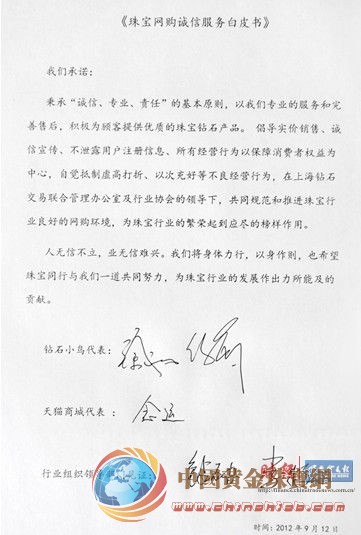 《珠宝网购诚信服务白皮书》
我们承诺：
秉承“诚信、专业、责任”的基本原则，以我们专业的服务和完
善售后，积极为顾客提供优质的珠宝钻石产品。 倡导实价销售、诚
信宣传、不泄露用户注册信息、所有经营行为以保障消费者权益为
中心，自觉抵制虚高打折、以次充好等不良经营行为，在上海钻石
交易联合管理办公室及行业协会的领导下，共同规范和推进珠宝行
业良好的网购环境，为珠宝行业的繁荣起到应尽的榜样作用。
人无信不立，业无信难兴。我们将身体力行，以身作则，也希望
珠宝同行与我们一道共同努力，为珠宝行业的发展作出力所能及的
贡献。
钻石小鸟代表：
天猫商城代表：
行业组织领导 见证：
中国黄金珠宝網
www.chinajeweler.com
时间：2012 年 9 月 12